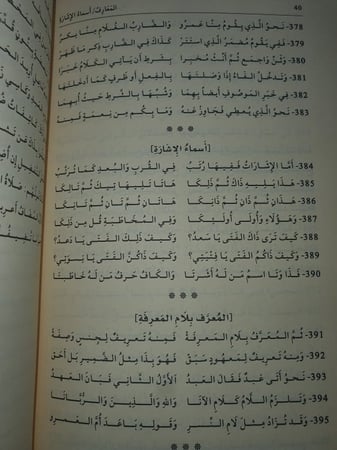 40 المَعَارِف/ أسماءُ الإِشَارَةِ
378- نَحوُ الَّذِي يَقُومُ بِنَا عَمرُو وَالضَّارِبُ الغُلَامُ مِنَّا بَكرُ
379- فَفِي يَقُومُ مُضمَرُ الَّذِي استَتَر كَذَاكَ فِي الضَّارِبِ ذِكرٌ مَا ظَهَر
380- وَثَنِّ وَاجمَع ثُمَّ أَنِّث مُخبِرَا بِشَرطِ أَن يَأتِي الكَلَامُ خَبَرَا
381- وَتَدخُلُ الفَاءُ إِذَا وَصَلتَهَا بِالفِعلِ أَو ظَرفٍ كَمَا أَدخَلتَهَا
382- فِي خَبَرِ المَوصُوفِ أَيضاً بِهِمَا وَشُبِّهَا بِالشَّرطِ حَيثُ أُبهِمَا
383- نَحوُ الَّذِي يُعطِي فَجَاوِز عَنهُ وَمَا بِكُم مِن نِعمَةٍ فَمِنهُ
* * *
[أسماءُ الإِشَارَةِ]
384- أَمَّا الإِشَارَاتُ فَفِيهَا رُتَبُ فِي القُربِ وَالبُعدِ كَمَا تُرَتَّبُ
385- هَذَا يَلِيهِ ذَاكَ ثُمَّ ذَلِكَا هَاتَا تَلِيهَا تِيكَ ثُمَّ تَالِكَا
386- هَذَانِ ثُمَّ ذَانِ ثُمَّ ذَانِكَا هَاتَانِ ثُمَّ تَانِ ثُمَّ تَانِكَا
387- وَهَؤُلَاءِ وَأُولَى أُولَئِكَا وَفِي المُخَاطَبَةِ قُل مِن ذَلِكَا
388- كَيفَ تَرَى ذَاكَ الفَتَى يَا سَعدُ؟ وَكَيفَ ذَلِكِ الفَتَى يَا دَعدُ؟
389- وَكَيفَ ذَاكُمُ الفَتَى يَا فِتيَتِي؟ وَكَيفَ ذَاكُنَّ الفَتَى يَا نِسوَتِي؟
390- فَذَا وَتَا اسمٌ مَن لَهُ أَشَرتَا وَالكَافُ حَرفُ مَن لَهُ خَاطَبتَا
* * *
[المُعَرَّف بِلَامِ المَعرِفَةِ]
391- ثُمَّ المُعَرَّفُ بِلَامِ المَعرِفَة فَمِنهُ تَعرِيفٌ لِجِنسٍ وَصِفَة
392- وَمِنهُ تَعرِيفٌ لِمَعهُودٍ سَبَق فَهُوَ بِذَا مِثلُ الضَّمِيرِ بَل أَحَق
393- نَحوُ أَتَى عَبدٌ فَقَالَ العَبدُ الأَوَّلُ الثَّانِي فَبَانَ العَهدُ
394- وَتَلزَمُ اللَّامُ كَلَامِ الآنَا وَاللهِ وَالَّذِينَ وَالزَّبَّانَا
395- وَقَد تُزَادُ مِثلَ لَامِ النَّسرِ وَقَولِهِ بَاعَدَ أُمَّ العَمرِو
* * *